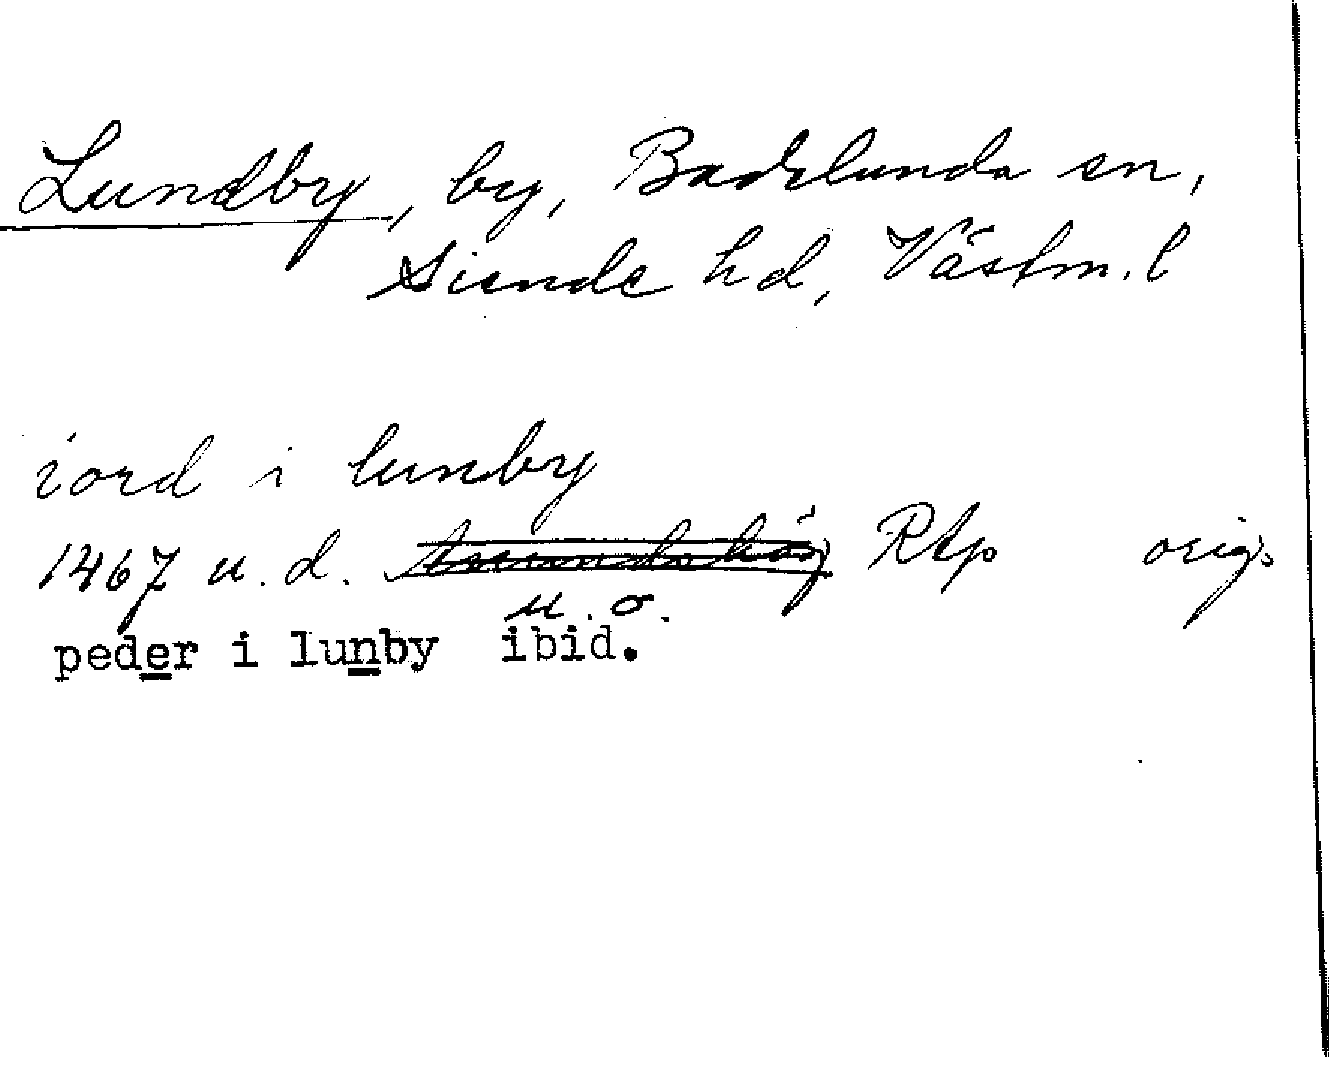 Lundby, by, Badelunda sn,
Siende hd, Västm. l
iord i lunby
1467 u.d. Rtp orig.
u.o.
peder i lunby ibid.